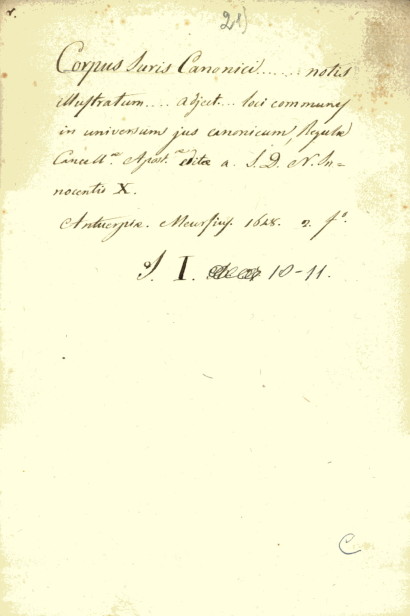 21)
Corpus Juris Canonici ...... notis
illustratum .... adject... loci communes
in universum jus canonicum, Regulæ
Cancell.æ Apost.æ editæ a. S. D. N. In=
nocentio X.
Antverpiæ. Meursius. 1648. 2. f°.
S. I. 10-11.
C